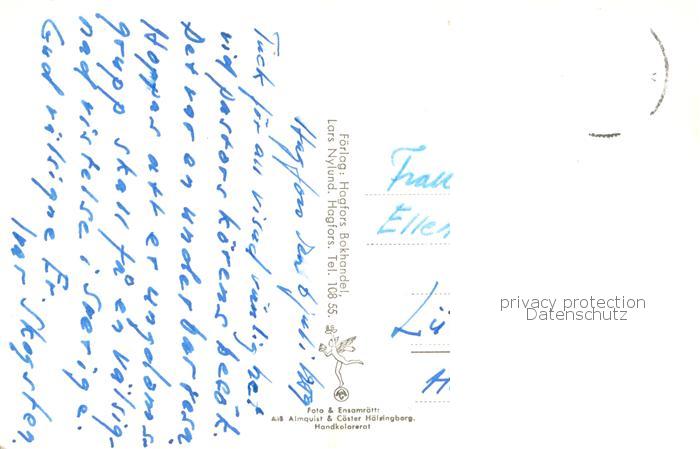 Hagfors den 6 juli 1959
Tack för all visad vänlighet
vid pastorskörens besök.
Det var en underbar resa.
Hoppas att er ungdoms-
grupp skall få en välsig-
nad vistelse i Sverige.
Gud välsigne Er.
Ivar Skogsten.
Förlag: Hagfors Bokhandel,
Lars Nylund. Hagfors. Tel. 108 55.
Foto & Ensamrätt:
A/B Almquist & Cöster Hälsingborg.
Handkolorerat
Frau
Ellen
Lü
H
privacy protection
Datenschutz